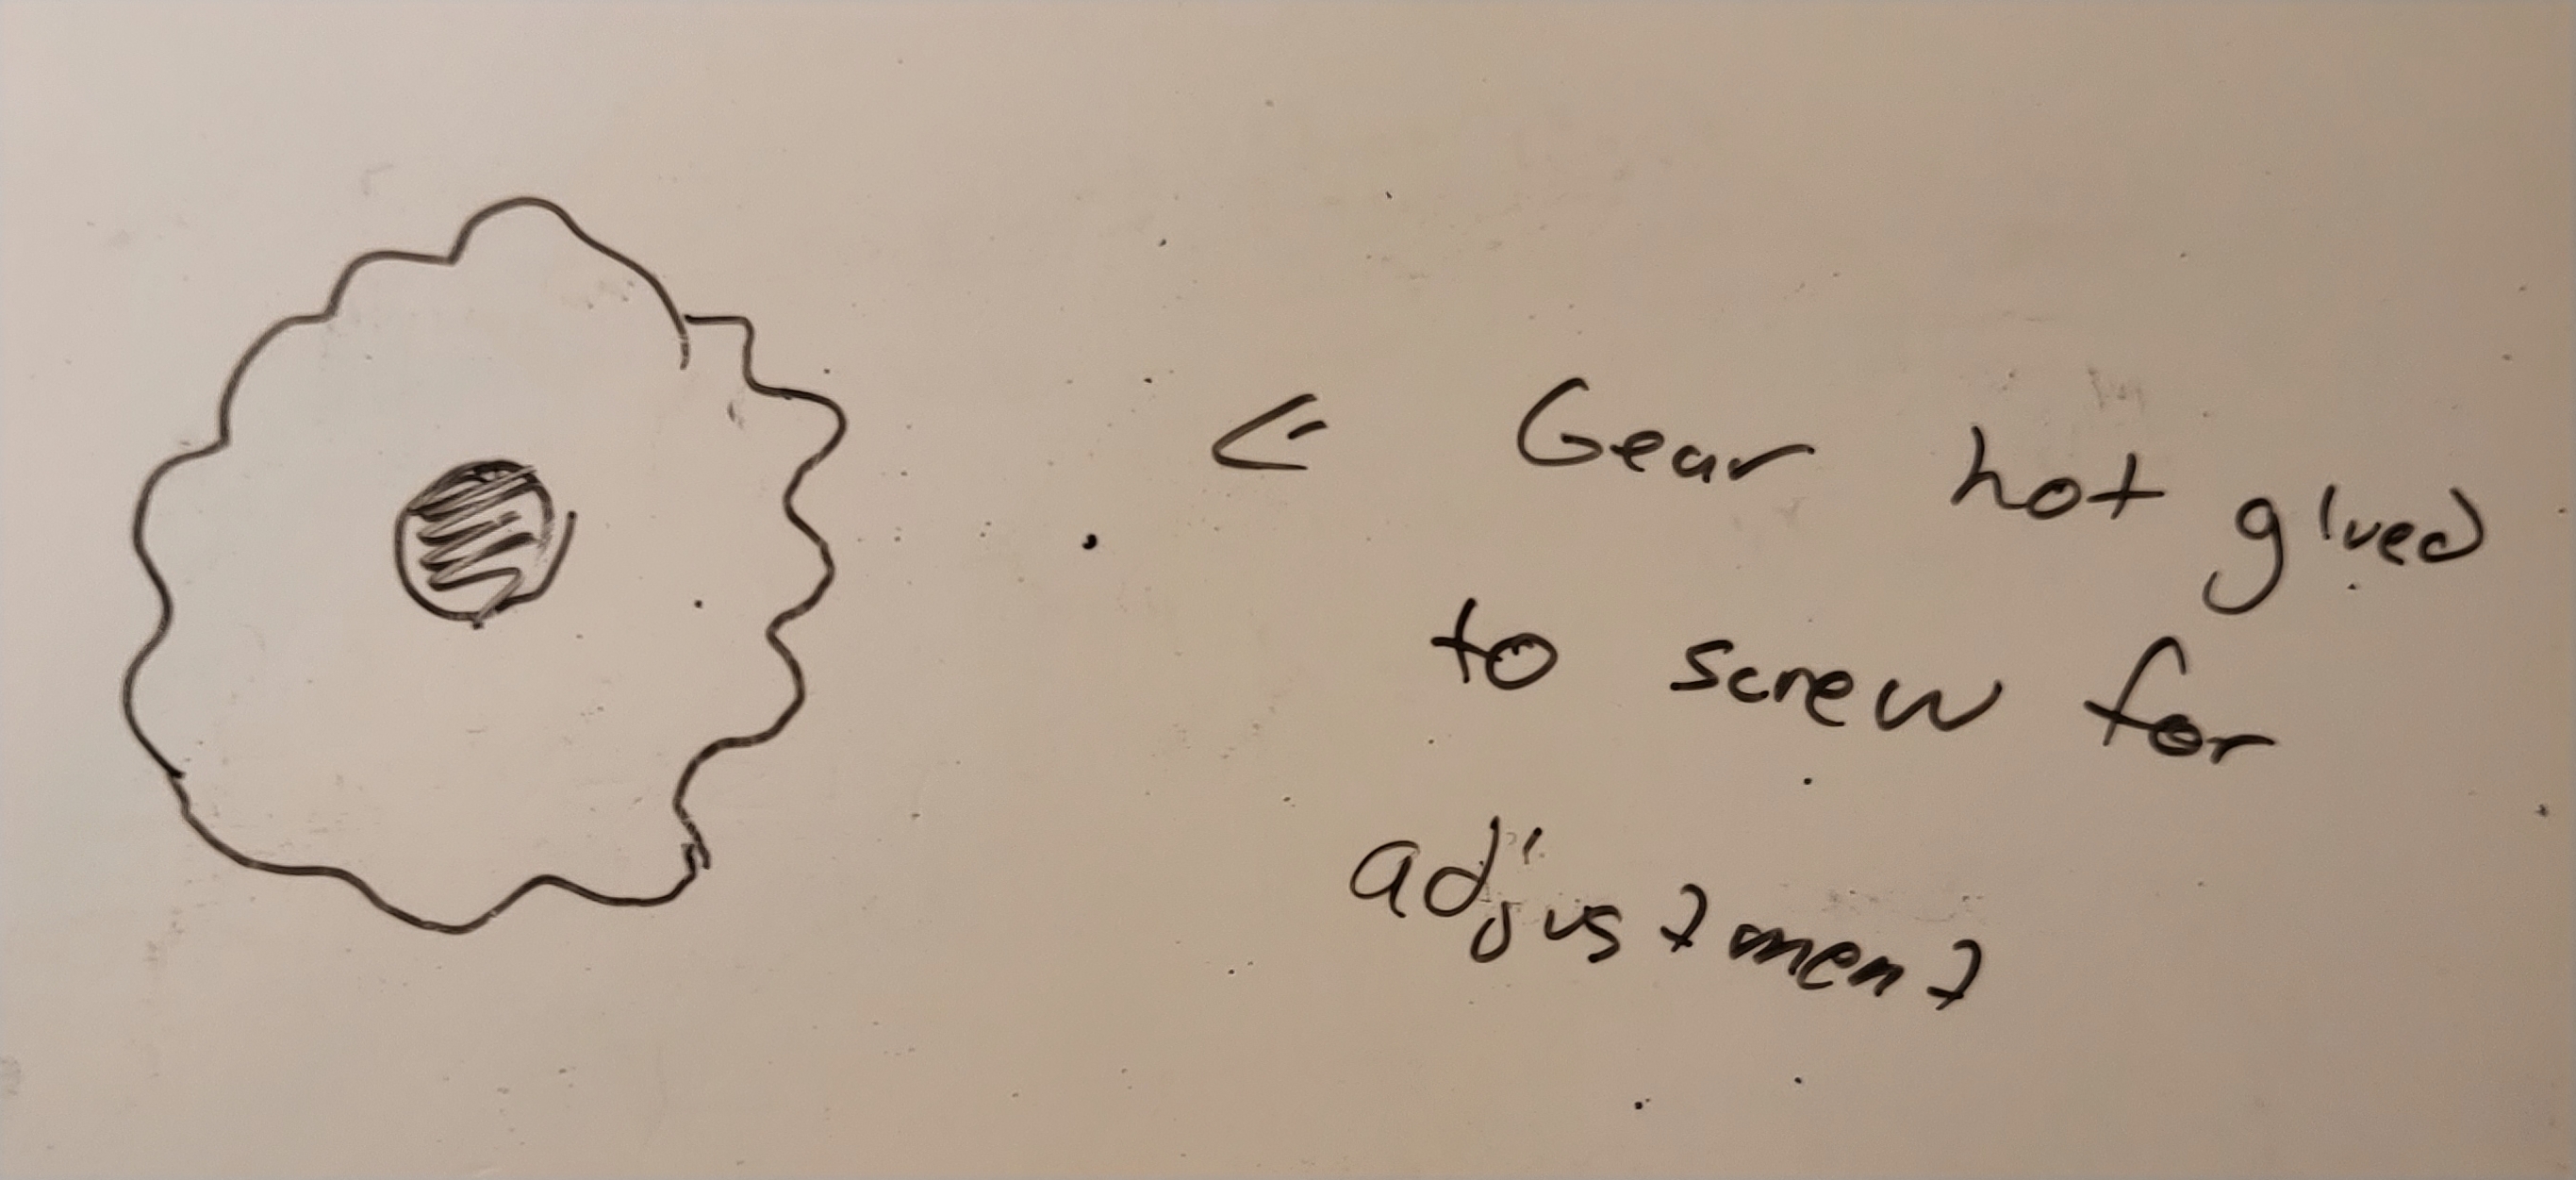 < Gear hot glued
to screw for
adjustment